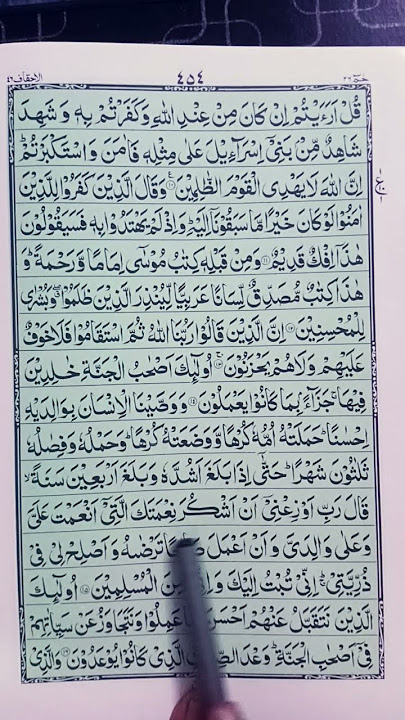 حٰمٓ ٢٦
٤٥٤
الاحقاف ٤٦
قُلْ اَرَءَيْتُمْ اِنْ كَانَ مِنْ عِنْدِ اللّٰهِ وَكَفَرْتُمْ بِهٖ وَشَهِدَ
شَاهِدٌ مِّنْۢ بَنِیْۤ اِسْرَآءِیْلَ عَلٰی مِثْلِهٖ فَاٰمَنَ وَاسْتَكْبَرْتُمْ ؕ
اِنَّ اللّٰهَ لَا یَهْدِی الْقَوْمَ الظّٰلِمِیْنَ ۱۰ وَقَالَ الَّذِیْنَ كَفَرُوْا لِلَّذِیْنَ
اٰمَنُوْا لَوْ كَانَ خَیْرًا مَّا سَبَقُوْنَاۤ اِلَیْهِ ؕ وَاِذْ لَمْ یَهْتَدُوْا بِهٖ فَسَیَقُوْلُوْنَ
هٰذَاۤ اِفْكٌ قَدِیْمٌ ۱۱ وَمِنْ قَبْلِهٖ كِتٰبُ مُوْسٰۤی اِمَامًا وَّرَحْمَةً ؕ وَ
هٰذَا كِتٰبٌ مُّصَدِّقٌ لِّسَانًا عَرَبِیًّا لِّیُنْذِرَ الَّذِیْنَ ظَلَمُوْا ۖ وَبُشْرٰی
لِلْمُحْسِنِیْنَ ۱۲ اِنَّ الَّذِیْنَ قَالُوْا رَبُّنَا اللّٰهُ ثُمَّ اسْتَقَامُوْا فَلَا خَوْفٌ
عَلَیْهِمْ وَلَا هُمْ یَحْزَنُوْنَ ۱۳ اُولٰٓئِكَ اَصْحٰبُ الْجَنَّةِ خٰلِدِیْنَ
فِیْهَا ۚ جَزَآءًۢ بِمَا كَانُوْا یَعْمَلُوْنَ ۱۴ وَوَصَّیْنَا الْاِنْسَانَ بِوَالِدَیْهِ
اِحْسٰنًا ؕ حَمَلَتْهُ اُمُّهٗ كُرْهًا وَّوَضَعَتْهُ كُرْهًا ؕ وَحَمْلُهٗ وَفِصٰلُهٗ
ثَلٰثُوْنَ شَهْرًا ؕ حَتّٰۤی اِذَا بَلَغَ اَشُدَّهٗ وَبَلَغَ اَرْبَعِیْنَ سَنَةً ۙ
قَالَ رَبِّ اَوْزِعْنِیْۤ اَنْ اَشْكُرَ نِعْمَتَكَ الَّتِیْۤ اَنْعَمْتَ عَلَیَّ
وَعَلٰی وَالِدَیَّ وَاَنْ اَعْمَلَ تَرْضٰىهُ وَاَصْلِحْ لِیْ فِیْ
ذُرِّیَّتِیْ ؕ اِنِّیْ تُبْتُ اِلَیْكَ الْمُسْلِمِیْنَ ۱۵ اُولٰٓئِكَ
الَّذِیْنَ نَتَقَبَّلُ عَنْهُمْ عَمِلُوْا وَنَتَجَاوَزُ عَنْ سَیِّاٰتِهِمْ
فِیْۤ اَصْحٰبِ الْجَنَّةِ ؕ وَعْدَ الَّذِیْ كَانُوْا یُوْعَدُوْنَ ۱۶ وَالَّذِیْ